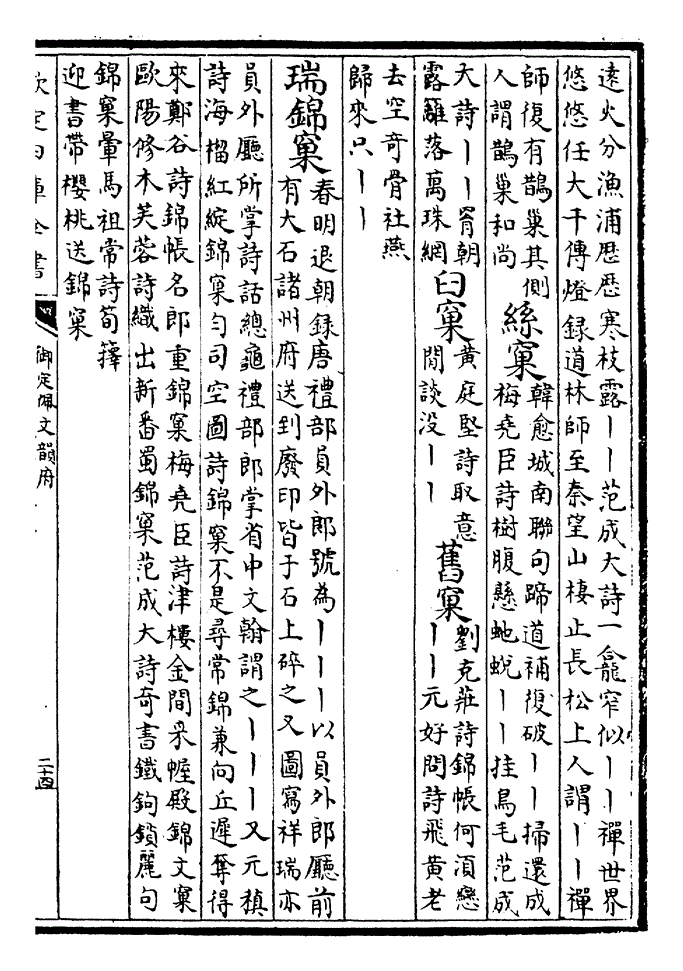 遠火分漁浦厯厯寒枝露｜｜范成大詩一龕窄似｜｜禪世界
悠悠任大千傳燈録道林師至秦望山棲止長松上人謂｜｜禪
師復有鵲巢其側
人謂鵲巢和尚
絲窠
韓愈城南聯句蹄道補復破｜｜掃還成
梅堯臣詩樹腹懸虵蛻｜｜挂鳥毛范成
大詩｜｜罥朝
露籬落萬珠綱
臼窠
黄庭堅詩取意
閒談没｜｜
舊窠
劉克莊詩錦帳何湏戀
｜｜元好問詩飛黄老
去空奇骨社燕
歸來只｜｜
瑞錦窠
春明退朝録唐禮部員外郎號為｜｜｜以員外郎廳前
有大石諸州府送到廢印皆于石上碎之又圖寫祥瑞亦
員外廳所掌詩話總龜禮部郎掌省中文翰謂之｜｜｜又元稹
詩海榴紅綻錦窠匀司空圖詩錦窠不是尋常錦兼向丘遲奪得
來鄭谷詩錦帳名郎重錦窠梅堯臣詩津樓金間采幄殿錦文窠
歐陽修木芙蓉詩織出新番蜀錦窠范成大詩奇書鐵鉤鎖麗句
錦窠暈馬祖常詩荀籜
迎書帶櫻桃送錦窠
欽定四庫全書
御定佩文韻府
二十四